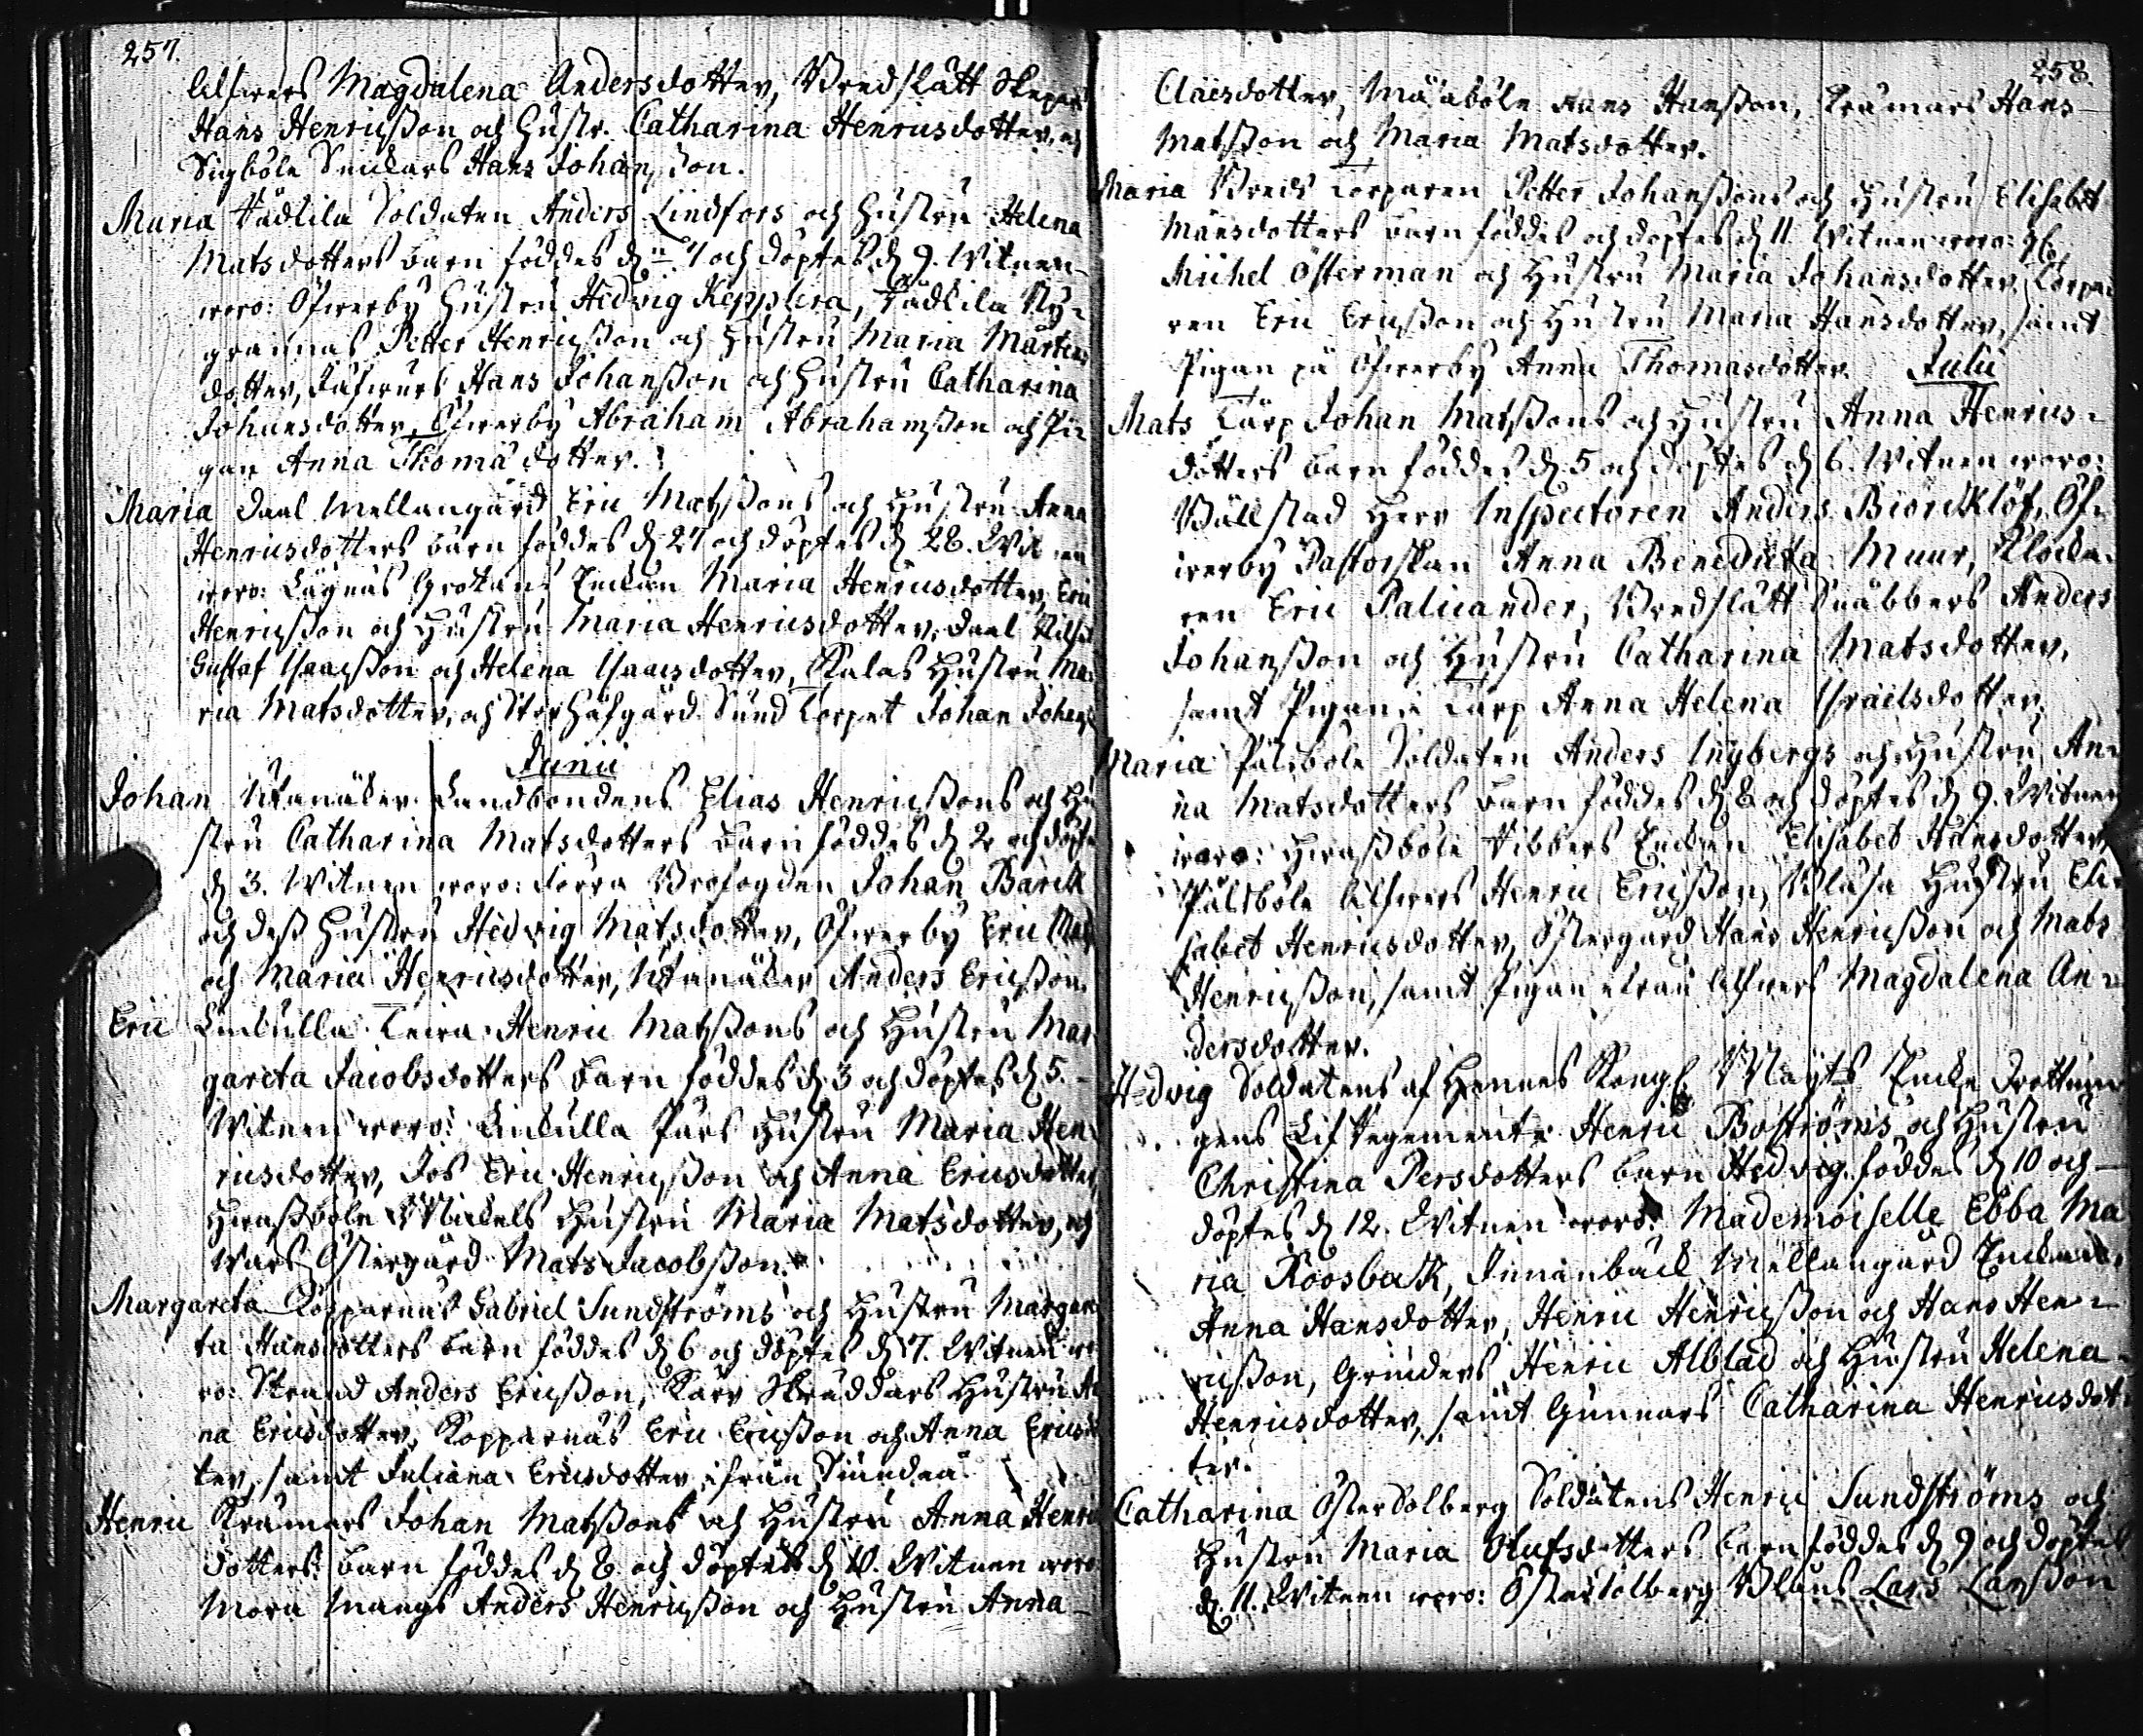 257.
Alfwers Magdalena Andersdotter, Bredslätt Skepars
Hans Henricsson och Hustr. Catharina Henricsdotter, och
Sigböle Snickars Hans Johansson.
Maria Vädlila Soldaten Anders Lindfors och Hustru Helena
Matsdotters barn föddes d. 7 och döptes d. 9. Witnen
woro: Öfwerby Hustru Hedvig Kepplera, Vädlila Ny-
grannas Petter Henricsson och Hustru Maria Mårtens
dotter, Hans Johansson och Hustru Catharina
Johansdotter, Öfwerby Abraham Abrahamsson och Pi-
gan Anna Thomä dotter.
Maria Daal Mellangård Eric Matssons och Hustru Anna
Henricsdotters barn föddes d. 27 och döptes d. 28. Witnen
woro: Lägnäs Enckan Maria Henricsdotter, Eric
Henricsson och Hustru Maria Henricsdotter, Daal
Gustaf Isaacsson och Helena Isaacsdotter, Kalas Hustru Ma-
ria Matsdotter, och Storhofgård Sund Torpet Johan Johans
Junii
Johan Utanåker Landbondens Elias Henricssons och Hu
stru Catharina Matsdotters barn föddes d. 2 och döptes
d. 3. Witnen woro: Förra Brofogden Johan Barck
och dess Hustru Hedvig Matsdotter, Öfwerby Eric Mats
och Maria Henricsdotter, Utanåker Anders Ericsson.
Eric Linkulla Henric Matssons och Hustru Mar
gareta Jacobsdotters barn föddes d. 3 och döptes d. 5.
Witnen woro: Linkulla Pärs Hustru Maria Hen
ricsdotter, Jos Eric Henricsson och Anna Ericsdotter,
Hirassböle Mickels Hustru Maria Matsdotter, och
Östergård Mats Jacobsson.
Margareta Kopparnäs Gabriel Sundströms och Hustru Margare
ta Hansdotters barn föddes d. 6 och döptes d. 7. Witnen wo
ro: Strand Anders Ericsson, Kärr Skräddars Hustru An
na Ericsdotter, Kopparnäs Eric Ericsson och Anna Ericsdot
ter, samt Juliana Ericsdotter ifrån Siundeå.
Henric Krämars Johan Matssons och Hustru Anna Henrics
dotters barn föddes d. 8 och döptes d. 10. Witnen woro
Mora Mangs Anders Henricsson och Hustru Anna
258.
Claesdotter, Måsaböle Hans Hansson, Krämars Hans
Matsson och Maria Matsdotter.
Maria Breds Torparen Petter Johanssons och Hustru Elisabet
Månsdotters barn föddes och döptes d. 11. Witnen woro:
Michel Österman och Hustru Maria Johansdotter, Torpa-
ren Eric Ericsson och Hustru Maria Hansdotter, samt
Pigan på Öfwerby Anna Thomasdotter. Julii
Mats Tårp Johan Matssons och Hustru Anna Henrics-
dotters barn föddes d. 5 och döptes d. 6. Witnen woro:
Wällstad Herr Inspectoren Anders Biörcklöf, Öf-
werby Pastorskan Anna Benedicta Muur, Klocka-
ren Eric Palicander, Bredslätt Snäbbers Anders
Johansson och Hustru Catharina Matsdotter,
samt Pigan i Tårp Anna Helena Israelsdotter.
Maria Pålsböle Soldaten Anders Ingbergs och Hustru An-
na Matsdotters barn föddes d. 8 och döptes d. 9. Witnen
woro: Hirassböle Vibbers Enckan Elisabet Hansdotter,
Pålsböle Alfwers Henric Ericsson, Klåsa Hustru Eli-
sabet Henricsdotter, Östergård Hans Henricsson och Mats
Henricsson, samt Pigan ifrån Alfwers Magdalena An-
dersdotter.
Hedvig Soldatens af Hennes Kongl. Mayts Encke Drottnin-
gens Lif Regemente Henric Boströms och Hustru
Christina Persdotters barn Hedvig föddes d. 10 och
döptes d. 12. Witnen woro: Mademoiselle Ebba Ma
ria Roosback, Innanbäck Mellangård Enckan
Anna Hansdotter, Henric Henricsson och Hans Hen-
ricsson, Grinders Henric Alblad och Hustru Helena
Henricsdotter, samt Gunnars Catharina Henricsdot-
ter.
Catharina Östersolberg Soldatens Henric Sundströms och
Hustru Maria Olufsdotters barn föddes d. 9 och döptes
d. 11. Witnen woro: Östersolberg Lars Larsson